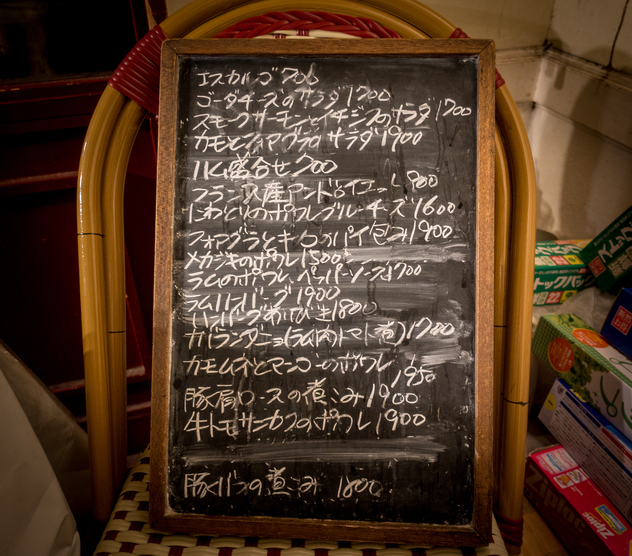 エスカルゴ 700
ゴーダチーズのサラダ 1700
スモークサーモンとイチジクのサラダ 1700
カモとフォアグラのサラダ 1900
ハム盛合せ 700
フランス産アンドゥイエット 900
にわとりのポワレブルーチーズ 1600
フォアグラとキノコのパイ包み 1900
メカジキのポワレ 1500
ラムのポワレ ペッパーソース 1700
ラムハンバーグ 1900
ハンバーグ 1800
(ラム肉トマト煮) 1700
カモムネとマンゴーのポワレ
1950
豚肩ロースの煮こみ 1900
牛トモサンカクのポワレ 1900
豚バラの煮こみ 1800
ストックバッグ
22
Ziploc